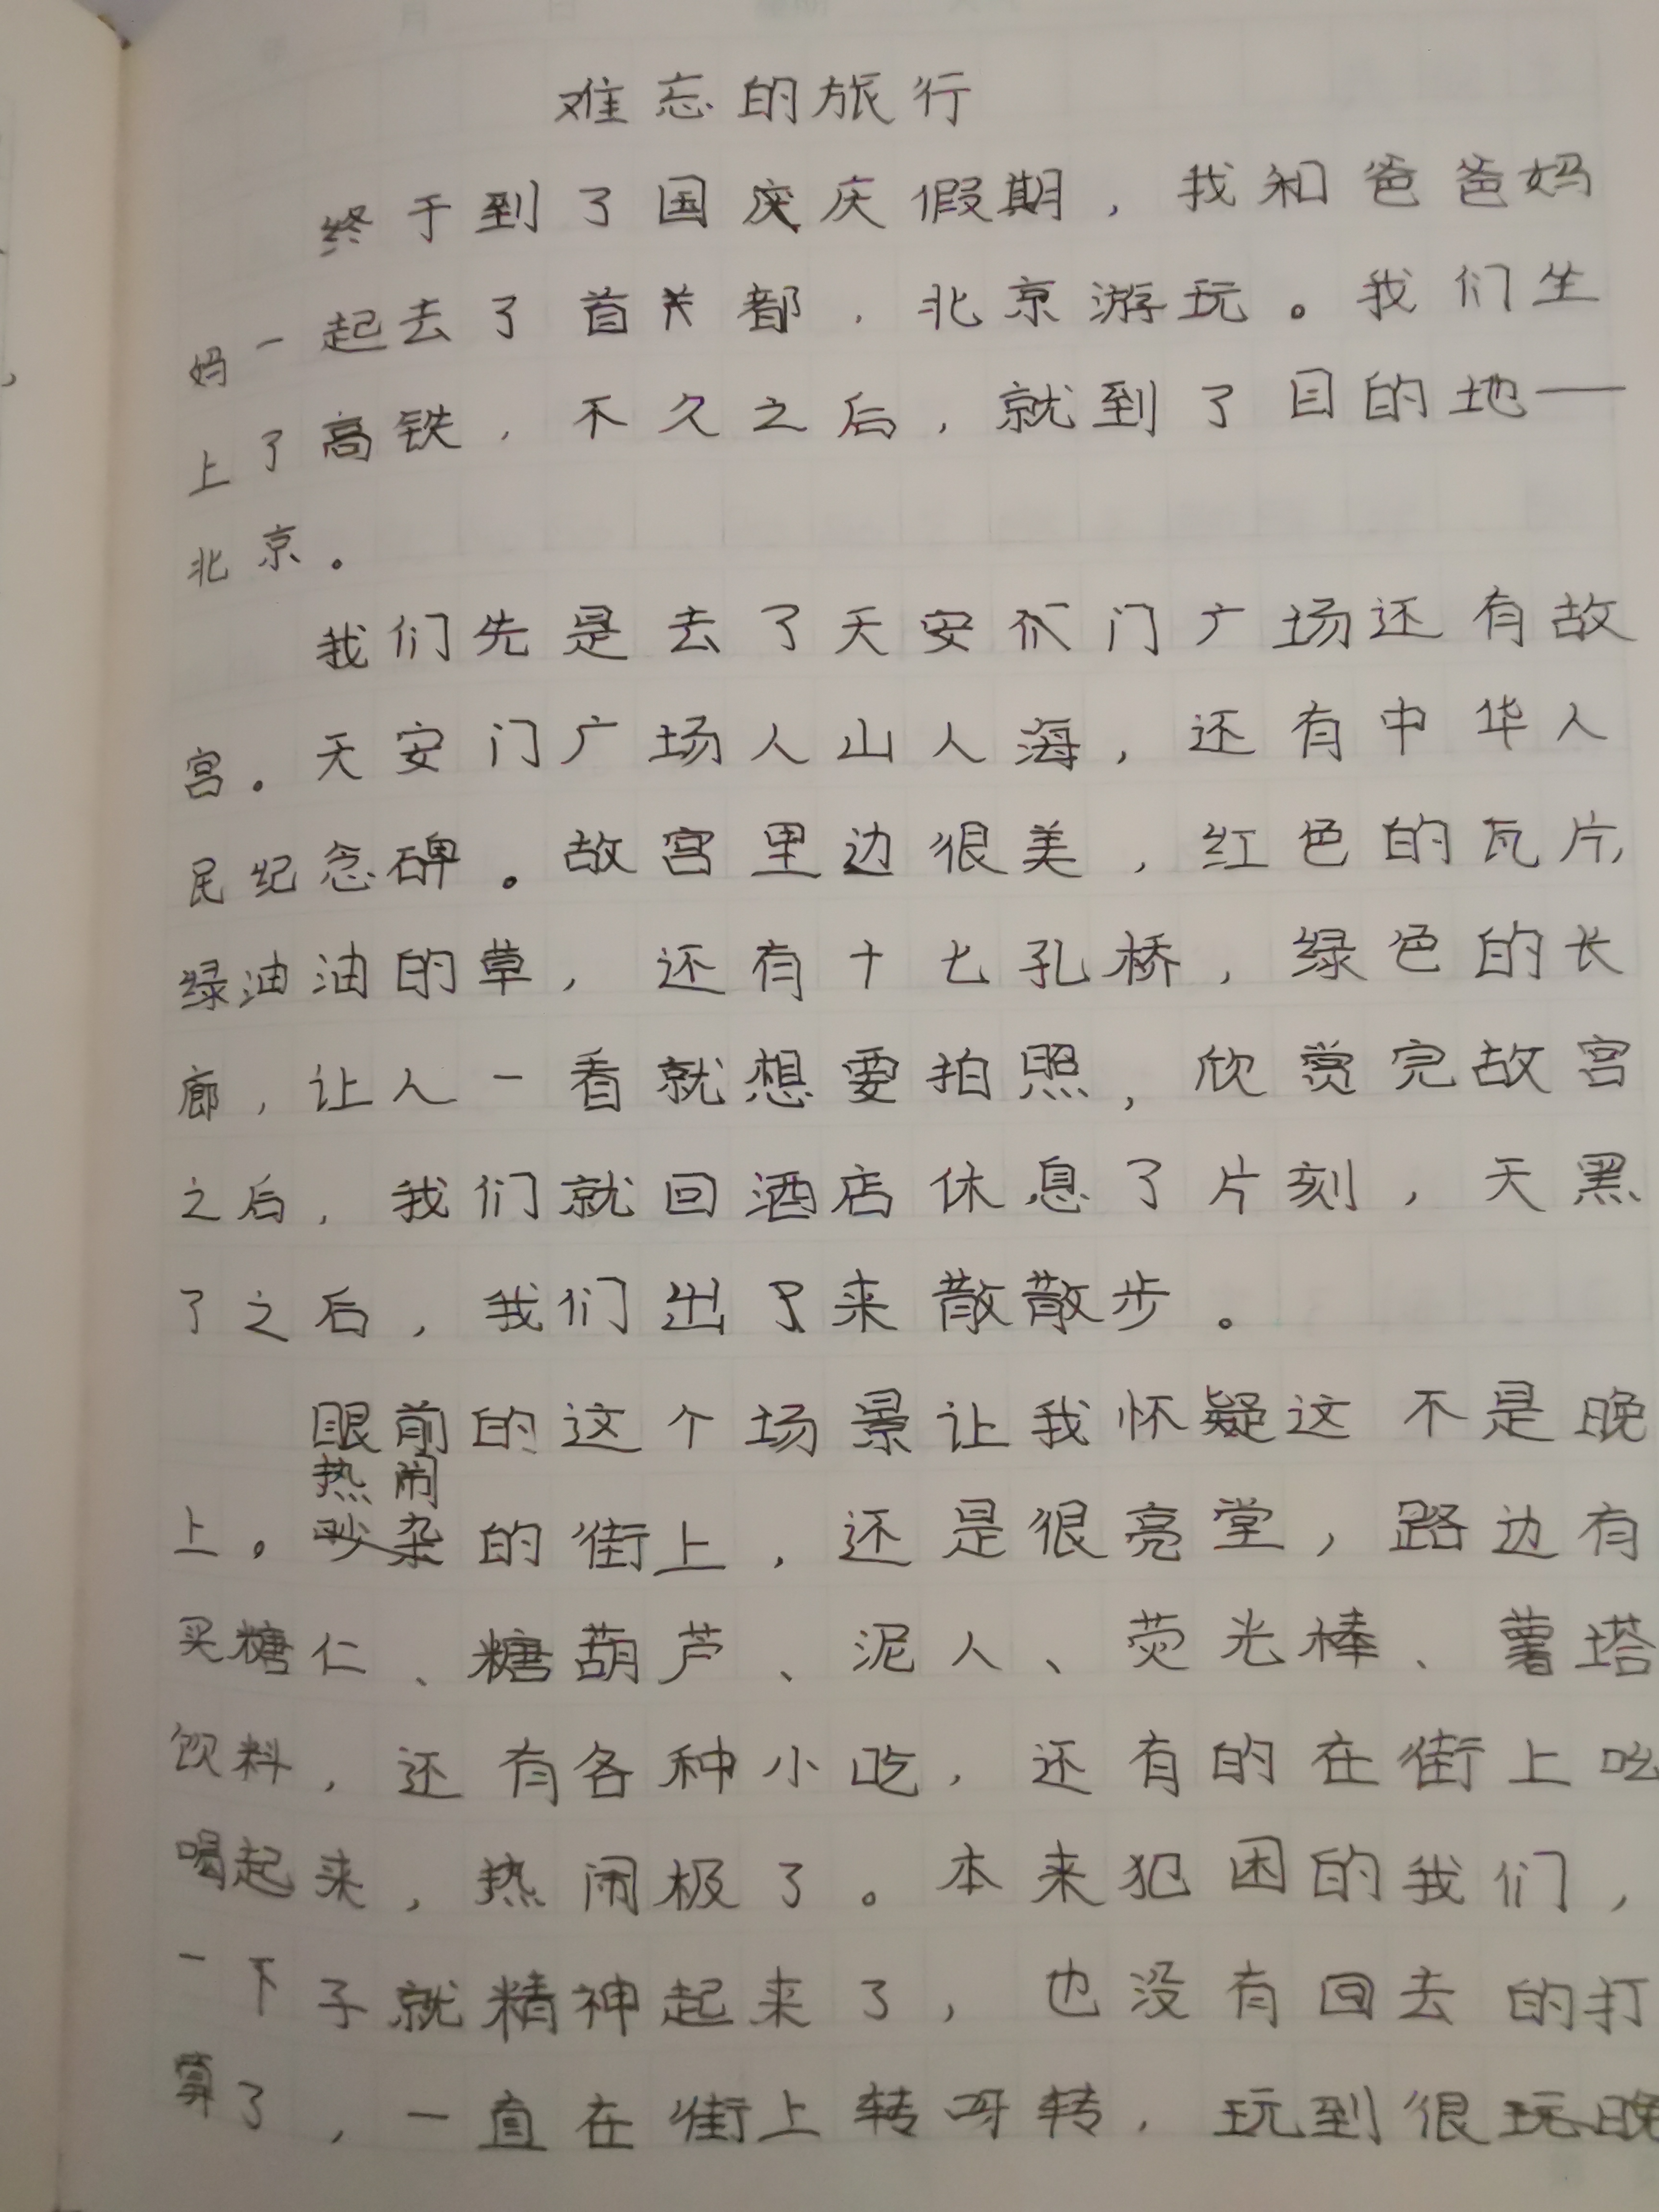 难忘的旅行
终于到了国庆假期，我和爸爸妈
妈一起去了首都，北京游玩。我们坐
上了高铁，不久之后，就到了目的地——
北京。
我们先是去了天安门广场还有故
宫。天安门广场人山人海，还有中华人
民纪念碑。故宫里边很美，红色的瓦片，
绿油油的草，还有十七孔桥，绿色的长
廊，让人一看就想要拍照，欣赏完故宫
之后，我们就回酒店休息了片刻，天黑
了之后，我们出来散散步。
眼前的这个场景让我怀疑这不是晚
热闹
上。吵杂的街上，还是很亮堂，路边有
买糖仁、糖葫芦、泥人、荧光棒、薯塔
饮料，还有各种小吃，还有的在街上吃
喝起来，热闹极了。本来犯困的我们，
一下子就精神起来了，也没有回去的打
算了，一直在街上转呀转，玩到很晚